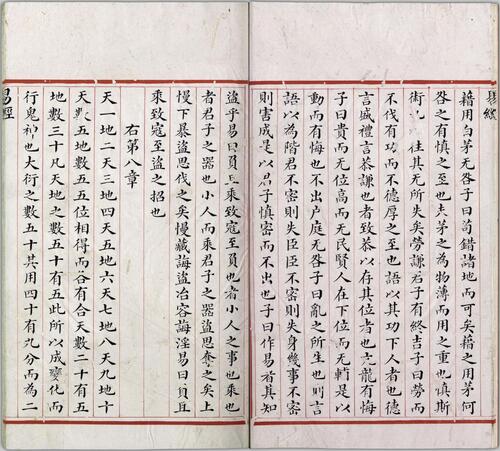 易經
藉用白茅无咎子曰苟錯諸地而可矣藉之用茅何
咎之有慎之至也夫茅之為物薄而用之重也慎斯
術往其无所失矣勞謙君子有終吉子曰勞而
不伐有功而不德厚之至也語以其功下人者也德
言盛禮言恭謙也者致恭以存其位者也亢龍有悔
子曰貴而无位高而无民賢人在下位而无輔是以
動而有悔也不出户庭无咎子曰亂之所生也則言
語以為階君不密則失臣臣不密則失身幾事不密
則害成是以君子慎密而不出也子曰作易者其知
盜乎易曰負且乘致寇至負也者小人之事也乘也
者君子之器也小人而乘君子之器盜思奪之矣上
慢下暴盜思伐之矣慢藏誨盜冶容誨淫易曰負且
乘致寇至盜之招也
右第八章
天一地二天三地四天五地六天七地八天九地十
天數五地數五五位相得而各有合天數二十有五
地數三十凡天地之數五十有五此所以成變化而
行鬼神也大衍之數五十其用四十有九分而為二
易經